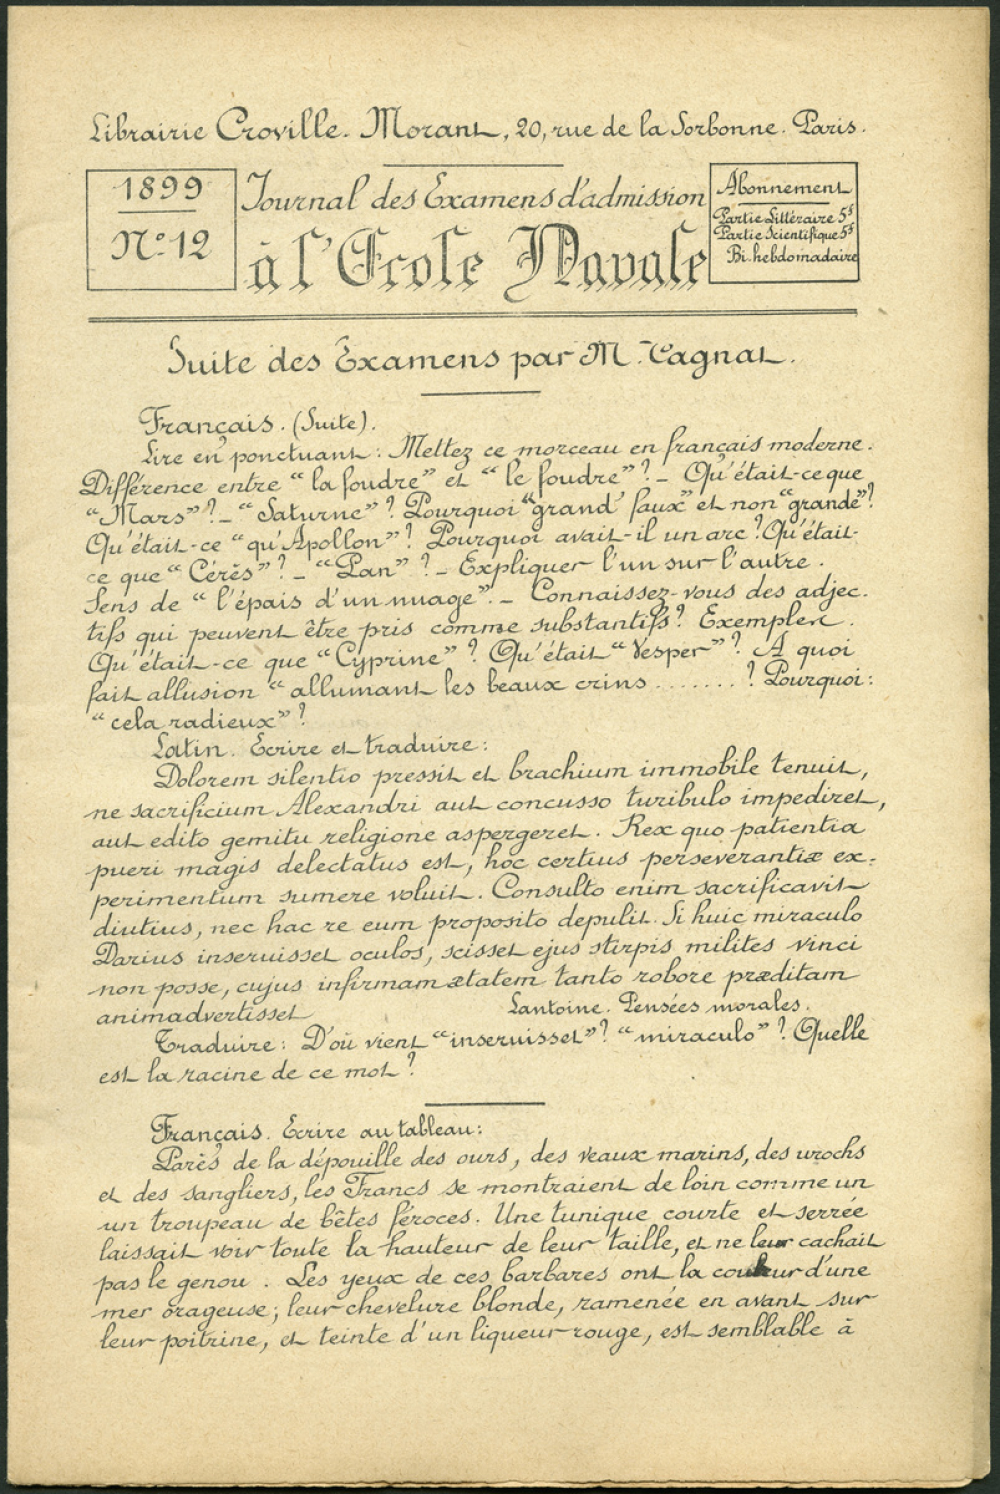 Librairie Croville-Morant, 20, rue de la Sorbonne. Paris.
1899
N° 12
Journal des Examens d'admission
à l'Ecole Navale
Abonnement
Partie Littéraire 5f
Partie Scientifique 5f
Bi-hebdomadaire
Suite des Examens par M. Cagnat.
Français. (Suite).
Lire en ponctuant: Mettez ce morceau en français moderne.
Différence entre "la foudre" et "le foudre"? - Qu'était-ce que
"Mars"? - "Saturne"? Pourquoi "grand' faux" et non "grande"?
Qu'était-ce "qu'Apollon"? Pourquoi avait-il un arc? Qu'était-
ce que "Cérès"? - "Pan"? - Expliquer l'un sur l'autre.
Sens de "l'épais d'un nuage". - Connaissez-vous des adjec-
tifs qui peuvent être pris comme substantifs? Exemples.
Qu'était-ce que "Cyprine"? Qu'était "Vesper"? A quoi
fait allusion "allumant les beaux crins .......? Pourquoi:
"cela radieux"?
Latin. Ecrire et traduire:
Dolorem silentio pressit et brachium immobile tenuit,
ne sacrificium Alexandri aut concusso turibulo impediret,
aut edito gemitu religione aspergeret. Rex quo patientia
pueri magis delectatus est, hoc certius perseverantiæ ex-
perimentum sumere voluit. Consulto enim sacrificavit
diutius, nec hac re eum proposito depulit. Si huic miraculo
Darius inseruisset oculos, scisset ejus stirpis milites vinci
non posse, cujus infirmam ætatem tanto robore præditam
animadvertisset
Lantoine. Pensées morales.
Traduire: D'où vient "inseruisset"? "miraculo"? Quelle
est la racine de ce mot?
Français. Ecrire au tableau:
Parés de la dépouille des ours, des veaux marins, des urochs
et des sangliers, les Francs se montraient de loin comme un
un troupeau de bêtes féroces. Une tunique courte et serrée
laissait voir toute la hauteur de leur taille, et ne leur cachait
pas le genou. Les yeux de ces barbares ont la couleur d'une
mer orageuse; leur chevelure blonde, ramenée en avant sur
leur poitrine, et teinte d'un liqueur rouge, est semblable à